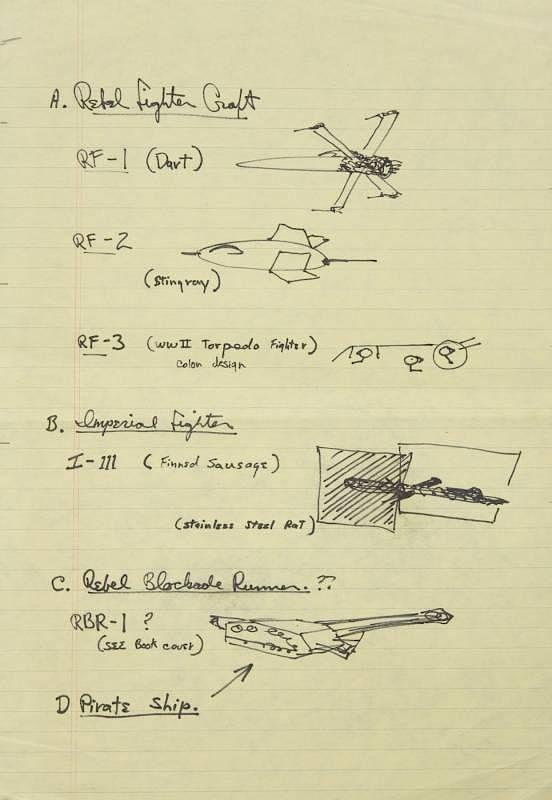 A. Rebel Fighter Craft
RF-1 (Dart)
RF-2
(Stingray)
RF-3 (WWII Torpedo Fighter)
Color design
B. Imperial Fighter
I-111 (Finned Sausage)
(Stainless Steel Rat)
C. Rebel Blockade Runner. ??
RBR-1 ?
(SEE Book cover)
D Pirate Ship.